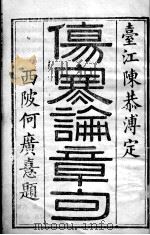 臺江陳恭溥定
傷寒論章句
西陂何廣憙題
www.youjiatushu.com